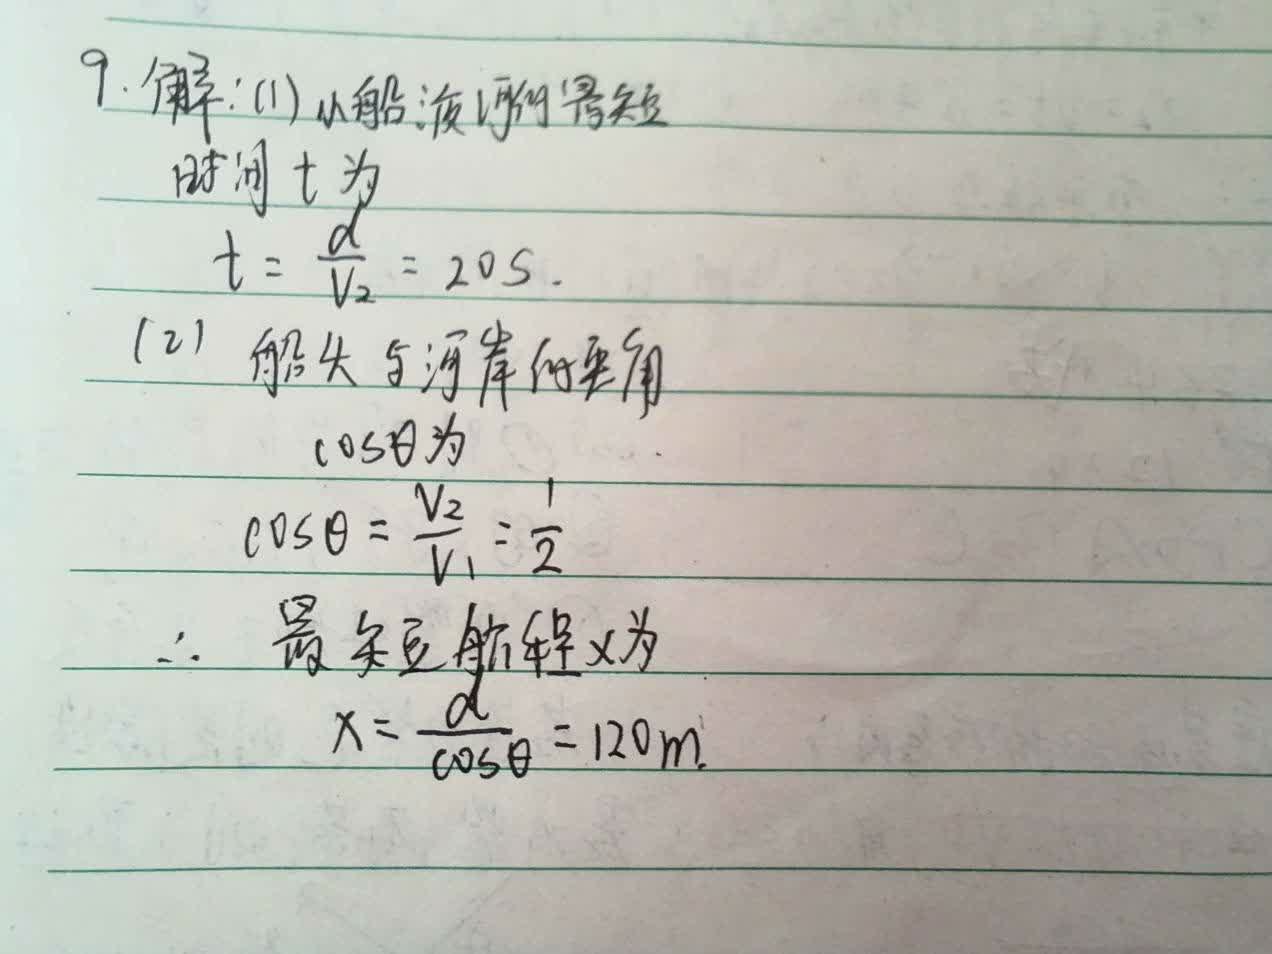 9.解:(1)小船渡河的最短
时间 t 为
t = d/V₂ = 20s.
(2) 船头与河岸的夹角
cosθ为
cosθ = V₂/V₁ = 1/2
∴ 最短航程x为
x = d/cosθ = 120m.